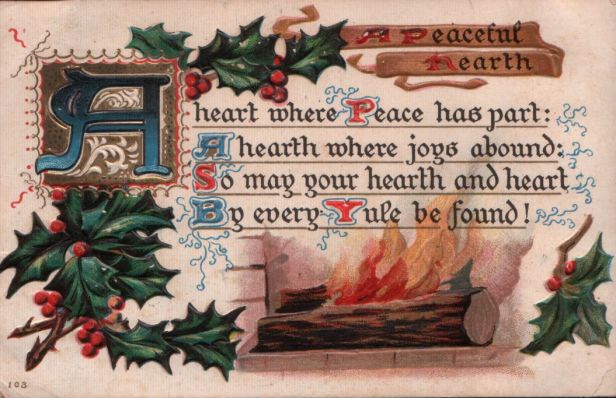 A Peaceful
Hearth
A heart where Peace has part:
A hearth where joys abound:
So may your hearth and heart
By every Yule be found!
103